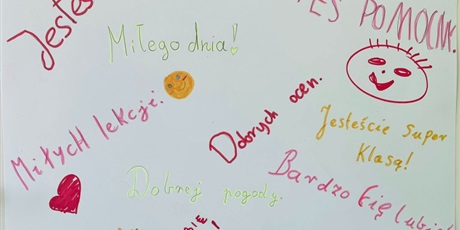 Jesteś
TEŚ POMOCNY.
Miłego dnia!
Miłych lekcji.
Dobrych ocen.
Jesteście Super
Klasą!
Dobrej pogody.
Bardzo Cię lubi